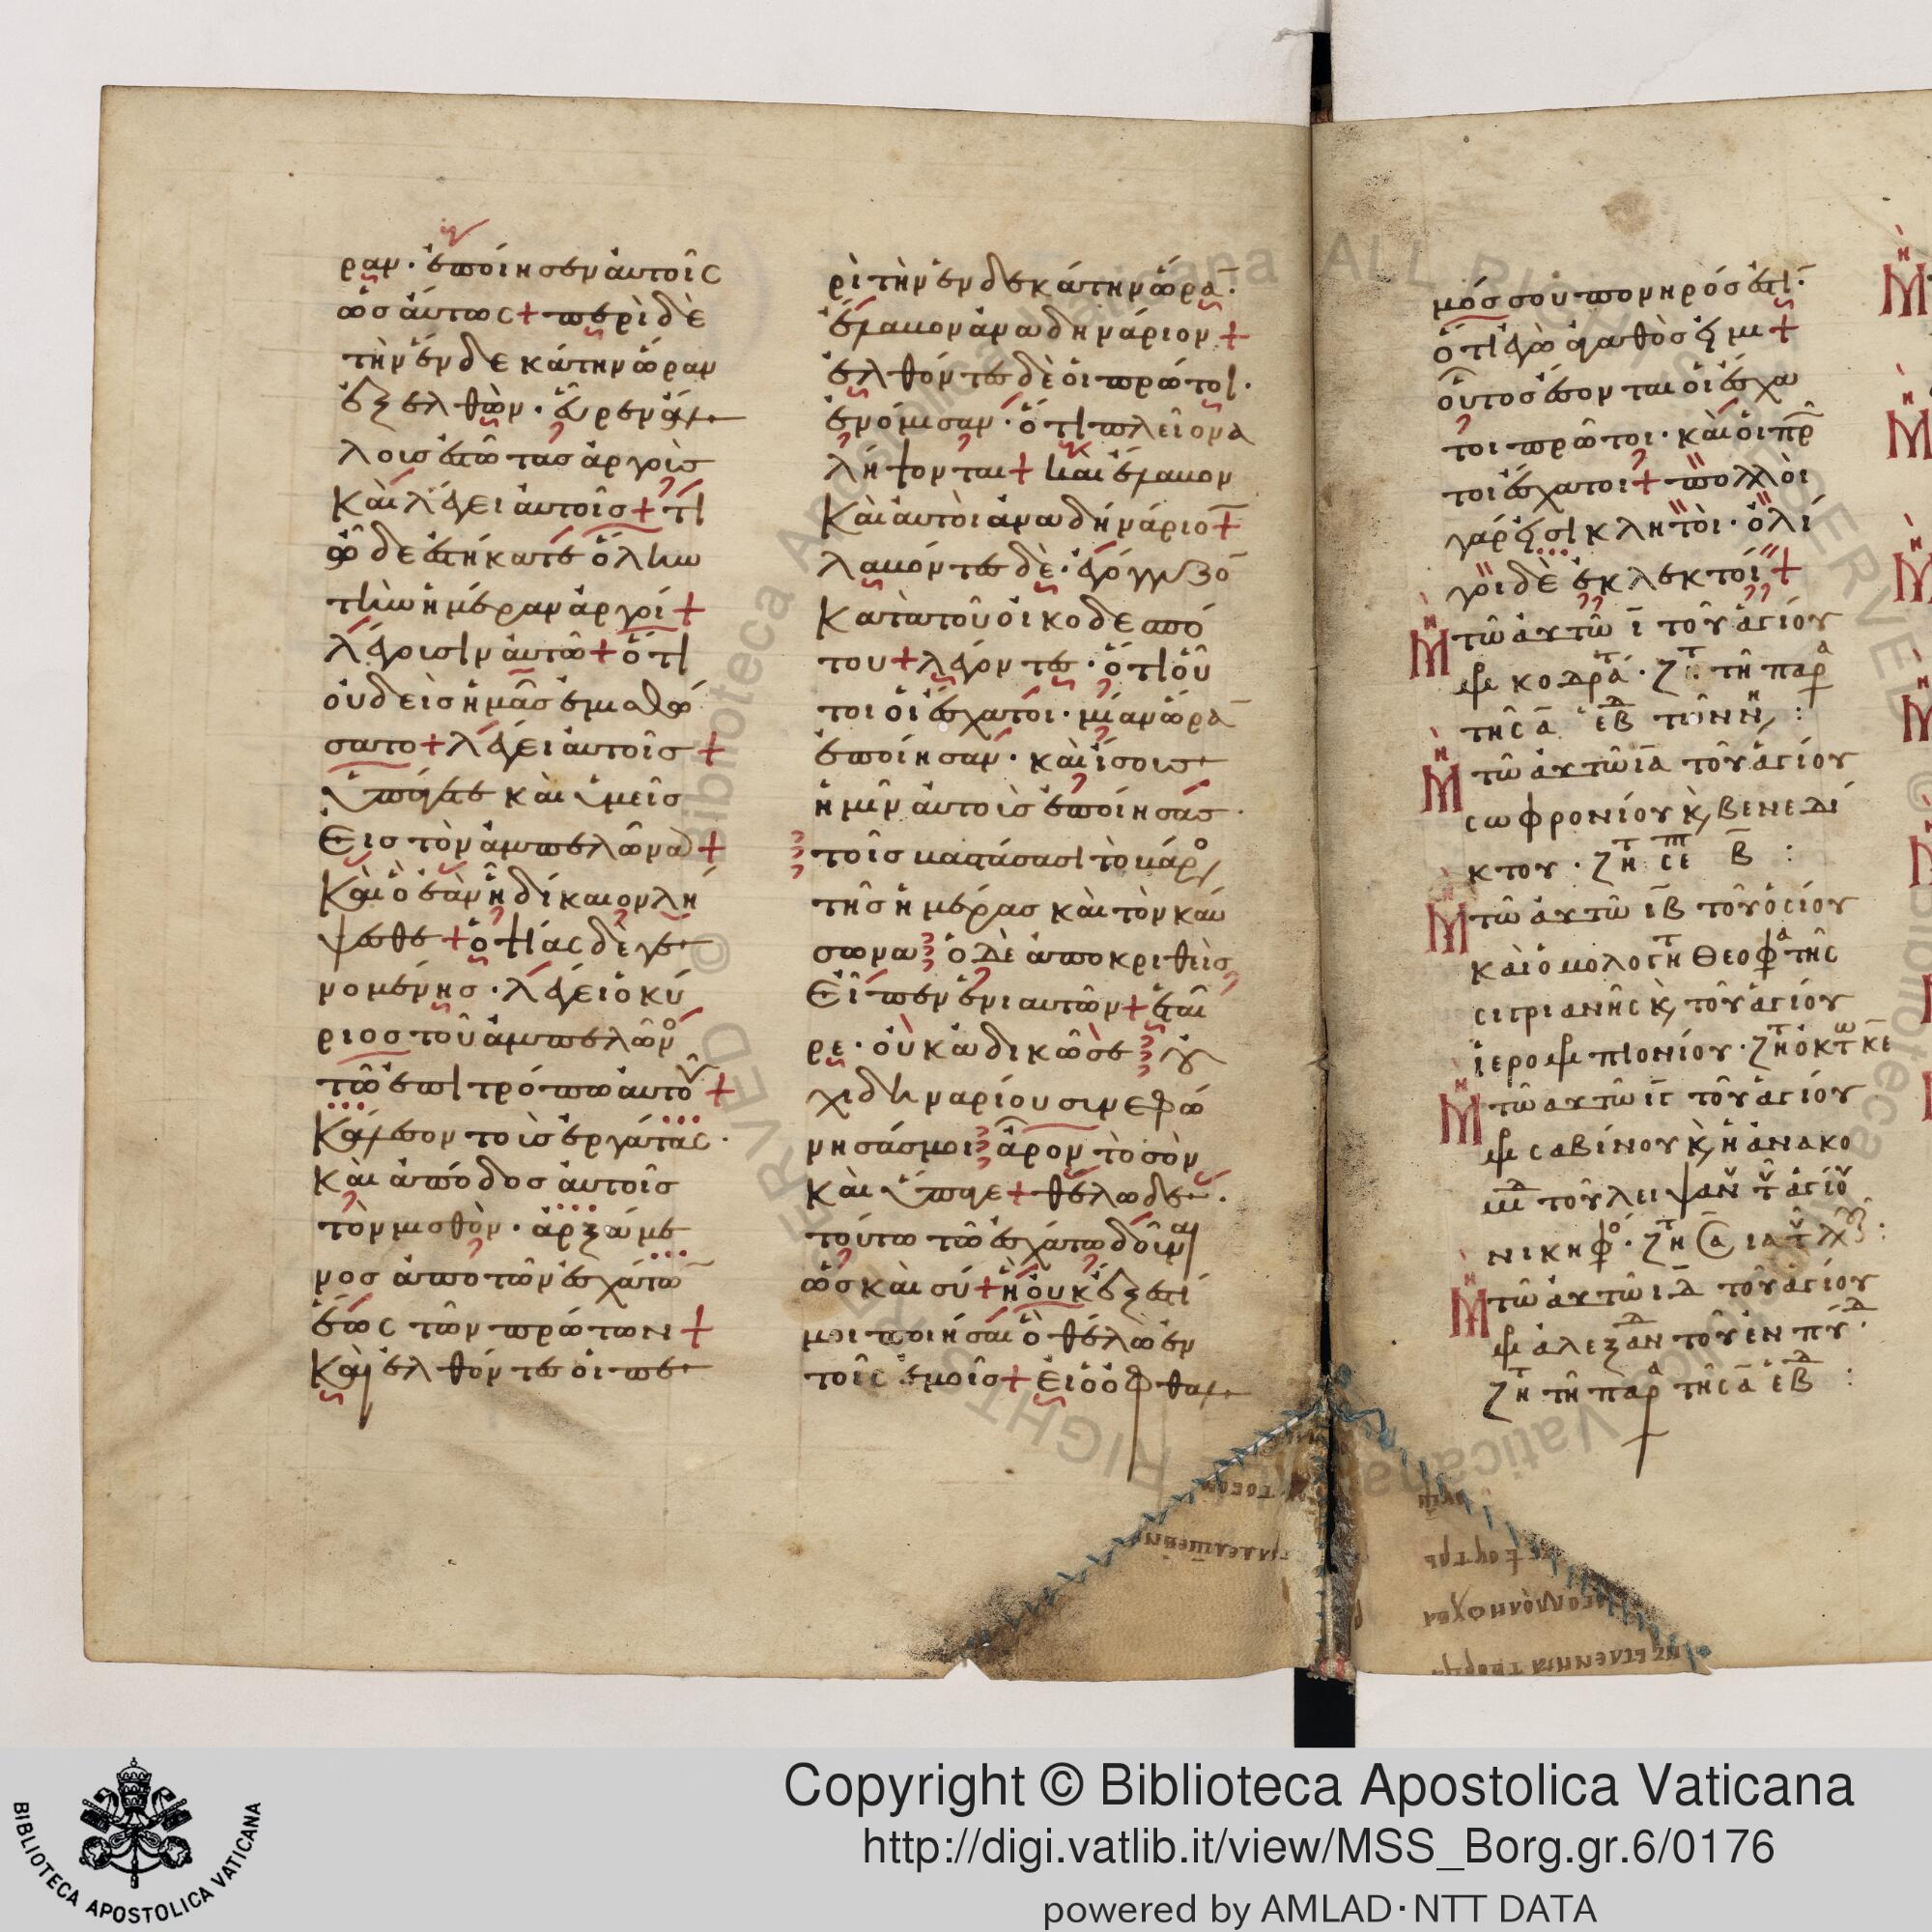 ραν· ἐποίησεν αὐτοῖς
ὡσάυτως + περὶ δὲ
τὴν ἑνδεκάτην ὥραν
ἐξελθὼν· ἓυρεν ἄλ
λους ἑστῶτας ἀργοὺς
Καὶ λέγει αὐτοῖς + τί
ὧδε ἑστήκατε ὅλην
τὴν ἡμέραν ἀργοί +
λέγουσιν αὐτῶ + ὅτι
οὐδεὶς ἡμᾶς ἐμισθώ
σατο + λέγει αὐτοῖς +
ὑπάγετε καὶ ὑμεῖς
Εἰς τὸν ἀμπελῶνα +
Καὶ ὃ ἐὰν ἦ δίκαιον λή
ψεσθε + ὀψίας δὲ γε
νομένης· λέγει ὁ κύ
ριος τοῦ ἀμπελῶν
τῶ ἐπιτρόπω αὐτοῦ +
Κάλεσον τοὺς ἐργάτας·
Καὶ ἀπόδος αὐτοῖς
τὸν μισθὸν· ἀρξάμε
νος ἀπὸ τῶν ἐσχάτω
ἕως τῶν πρώτων +
Καὶ ἐλθόντες οἱ πε
ρὶ τὴν ἑνδεκάτην ὥρα·
ἔλαβον ἀνὰ δηνάριον +
ἐλθόντες δὲ οἱ πρῶτοι·
ἐνόμισαν· ὅτι πλείονα
λήψονται + Καὶ ἔλαβον
Καὶ αὐτοὶ ἀνὰ δηνάριο +
λαβόντες δὲ· ἐγόγγυζο
Κατὰ τοῦ οἰκοδεσπό
του + λέγοντες· ὅτι οὗ
τοι οἱ ἔσχατοι· μίαν ὥρα
ἐποίησαν· καὶ ἴσους
ἡμῖν αὐτοὺς ἐποίησας·
τοῖς βαστάσασι τὸ βάρο
τῆς ἡμέρας καὶ τὸν καύ
σωνα ὁ δὲ ἀποκριθεὶς
Εἶπεν ἑνὶ αὐτῶν + ἑταῖ
ρε· οὐκ ἀδικῶ σε οὐ
χὶ δηναρίου συνεφώ
νησάς μοι ἆρον τὸ σὸν
Καὶ ὕπαγε + θέλω δὲ·
τούτω τῶ ἐσχάτω δοῦναι
ὡς καὶ σύ + ἢ οὐκ ἔξεστί
μοι ποιῆσαι ὃ θέλω ἐν
τοῖς ἐμοῖς + εἰ ὁ ὀφθαλ
μός σου πονηρός ἐστι·
ὅτι ἐγὼ ἀγαθός εἰμι +
οὕτος ἔσονται οἱ ἔσχα
τοι πρῶτοι· καὶ οἱ πρῶ
τοι ἔσχατοι + πολλοὶ
γάρ εἰσι κλητοὶ· ὀλί
γοι δὲ ἐκλεκτοί +
Μη τῶ αὐτῶ ι τοῦ ἁγίου
κοδρά· ζητ τῆ παρ
τῆς α εβ τῶν Ν :
Μη τῶ αὐτῶ ια τοῦ ἁγίου
σωφρονίου κ, βενεδί
κτου· ζητ σε β :
Μη τῶ αὐτῶ ιβ τοῦ ὁσίου
καὶ ὁμολογητ θεοφα τῆς
σιγριανῆς κ, τοῦ ἁγίου
ἱερομ πιονίου· ζητ ὀκτω κε
Μη τῶ αὐτῶ ιγ τοῦ ἁγίου
μ σαβίνου κ, ἡ ἀνακο
μιδ τοῦ λειψαν τ ἁγίου
νικηφο· ζητ
Μη τῶ αὐτῶ ιδ τοῦ ἁγίου
μ ἀλεξάνδ τοῦ ἐν πύδ·
ζητ τῆ παρα τῆς α εβδ :
Copyright © Biblioteca Apostolica Vaticana
http://digi.vatlib.it/view/MSS_Borg.gr.6/0176
powered by AMLAD·NTT DATA
BIBLIOTECA APOSTOLICA VATICANA